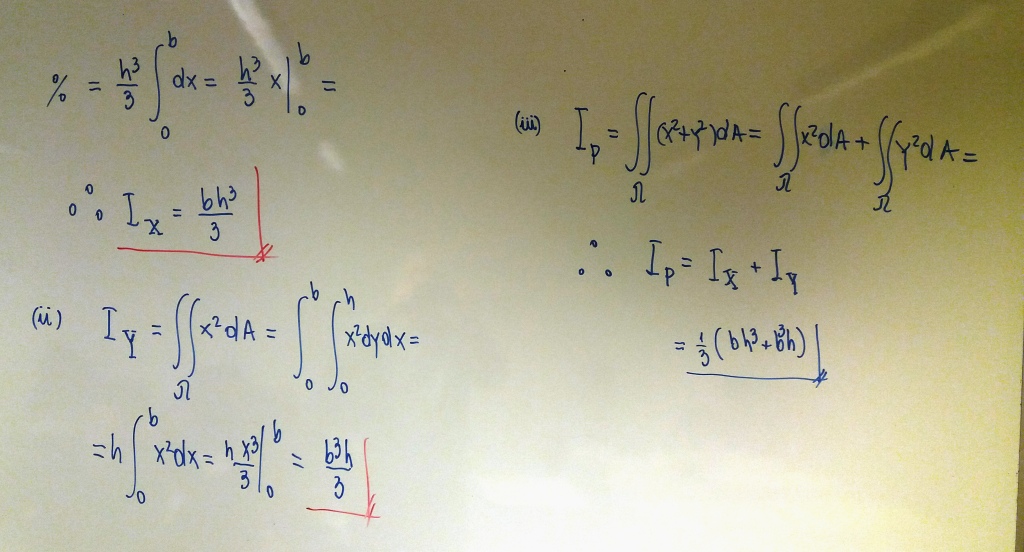 % = h³/3 ∫₀ᵇ dx = h³/3 x|₀ᵇ =
∴ I_x = bh³/3
(ii) I_y = ∬_Ω x² dA = ∫₀ᵇ ∫₀ʰ x² dy dx =
= h ∫₀ᵇ x² dx = h x³/3 |₀ᵇ = b³h/3
(iii) I_p = ∬_Ω (x²+y²) dA = ∬_Ω x² dA + ∬_Ω y² dA =
∴ I_p = I_x + I_y
= 1/3 (bh³ + b³h)